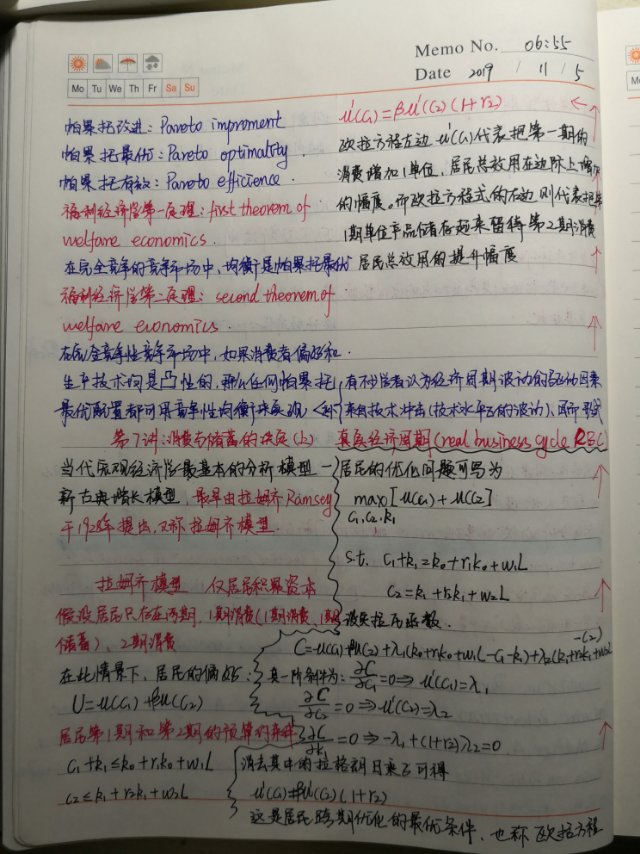 Memo No. 06:55
Mo Tu We Th Fr Sa Su
Date 2019 / 11 / 5
帕累托改进：Pareto improment
帕累托最优：Pareto optimality.
帕累托有效：Pareto efficience.
福利经济学第一定理：first theorem of
welfare economics.
在完全竞争的竞争市场中，均衡是帕累托最优
福利经济学第二定理：second theorem of
welfare economics.
在完全竞争性竞争市场中，如果消费者偏好和
生产技术均是凸性的，那么任何帕累托
最优配置都可用竞争性均衡来实现
第7讲：消费与储蓄的决定(上)
当代宏观经济学最基本的分析模型一
新古典增长模型，最早由拉姆齐Ramsey
于1928年提出，又称拉姆齐模型.
拉姆齐模型 仅居民积累资本
假设居民只存在两期，1期消费(1期消费，1期
储蓄)、2期消费
在此情景下，居民的偏好：
U=u(C1)+βu(C2)
居民第1期和第2期的预算约束
C1+k1≤k0+r1k0+w1L
C2≤k1+r2k1+w2L
u'(C1)=βu'(C2)(1+r2) ←
欧拉方程左边u'(C1)代表把第一期的
消费增加1单位，居民总效用在边际上增加
的幅度。而欧拉方程式的右边则代表把第
1期单位产品储存起来留待第2期消费
居民总效用的提升幅度
有不少学者认为经济周期波动的驱动因素
来自技术冲击(技术水平的波动)，
真实经济周期(real business cycle RBC)
居民的优化问题可写为
max[u(C1)+u(C2)]
C1,C2,k1
s.t. C1+k1=k0+r1k0+w1L
C2=k1+r2k1+w2L
设拉氏函数.
-C2)
L=u(C1)+βu(C2)+λ1(k0+r1k0+w1L-C1-k1)+λ2(k1+r2k1+w2L
其一阶条件为：∂L/∂C1=0⇒u'(C1)=λ1
∂L/∂C2=0⇒u'(C2)=λ2
∂L/∂k1=0⇒-λ1+(1+r2)λ2=0
消去其中的拉格朗日乘子可得
u'(C1)=βu'(C2)(1+r2)
这是居民跨期优化的最优条件，也称欧拉方程